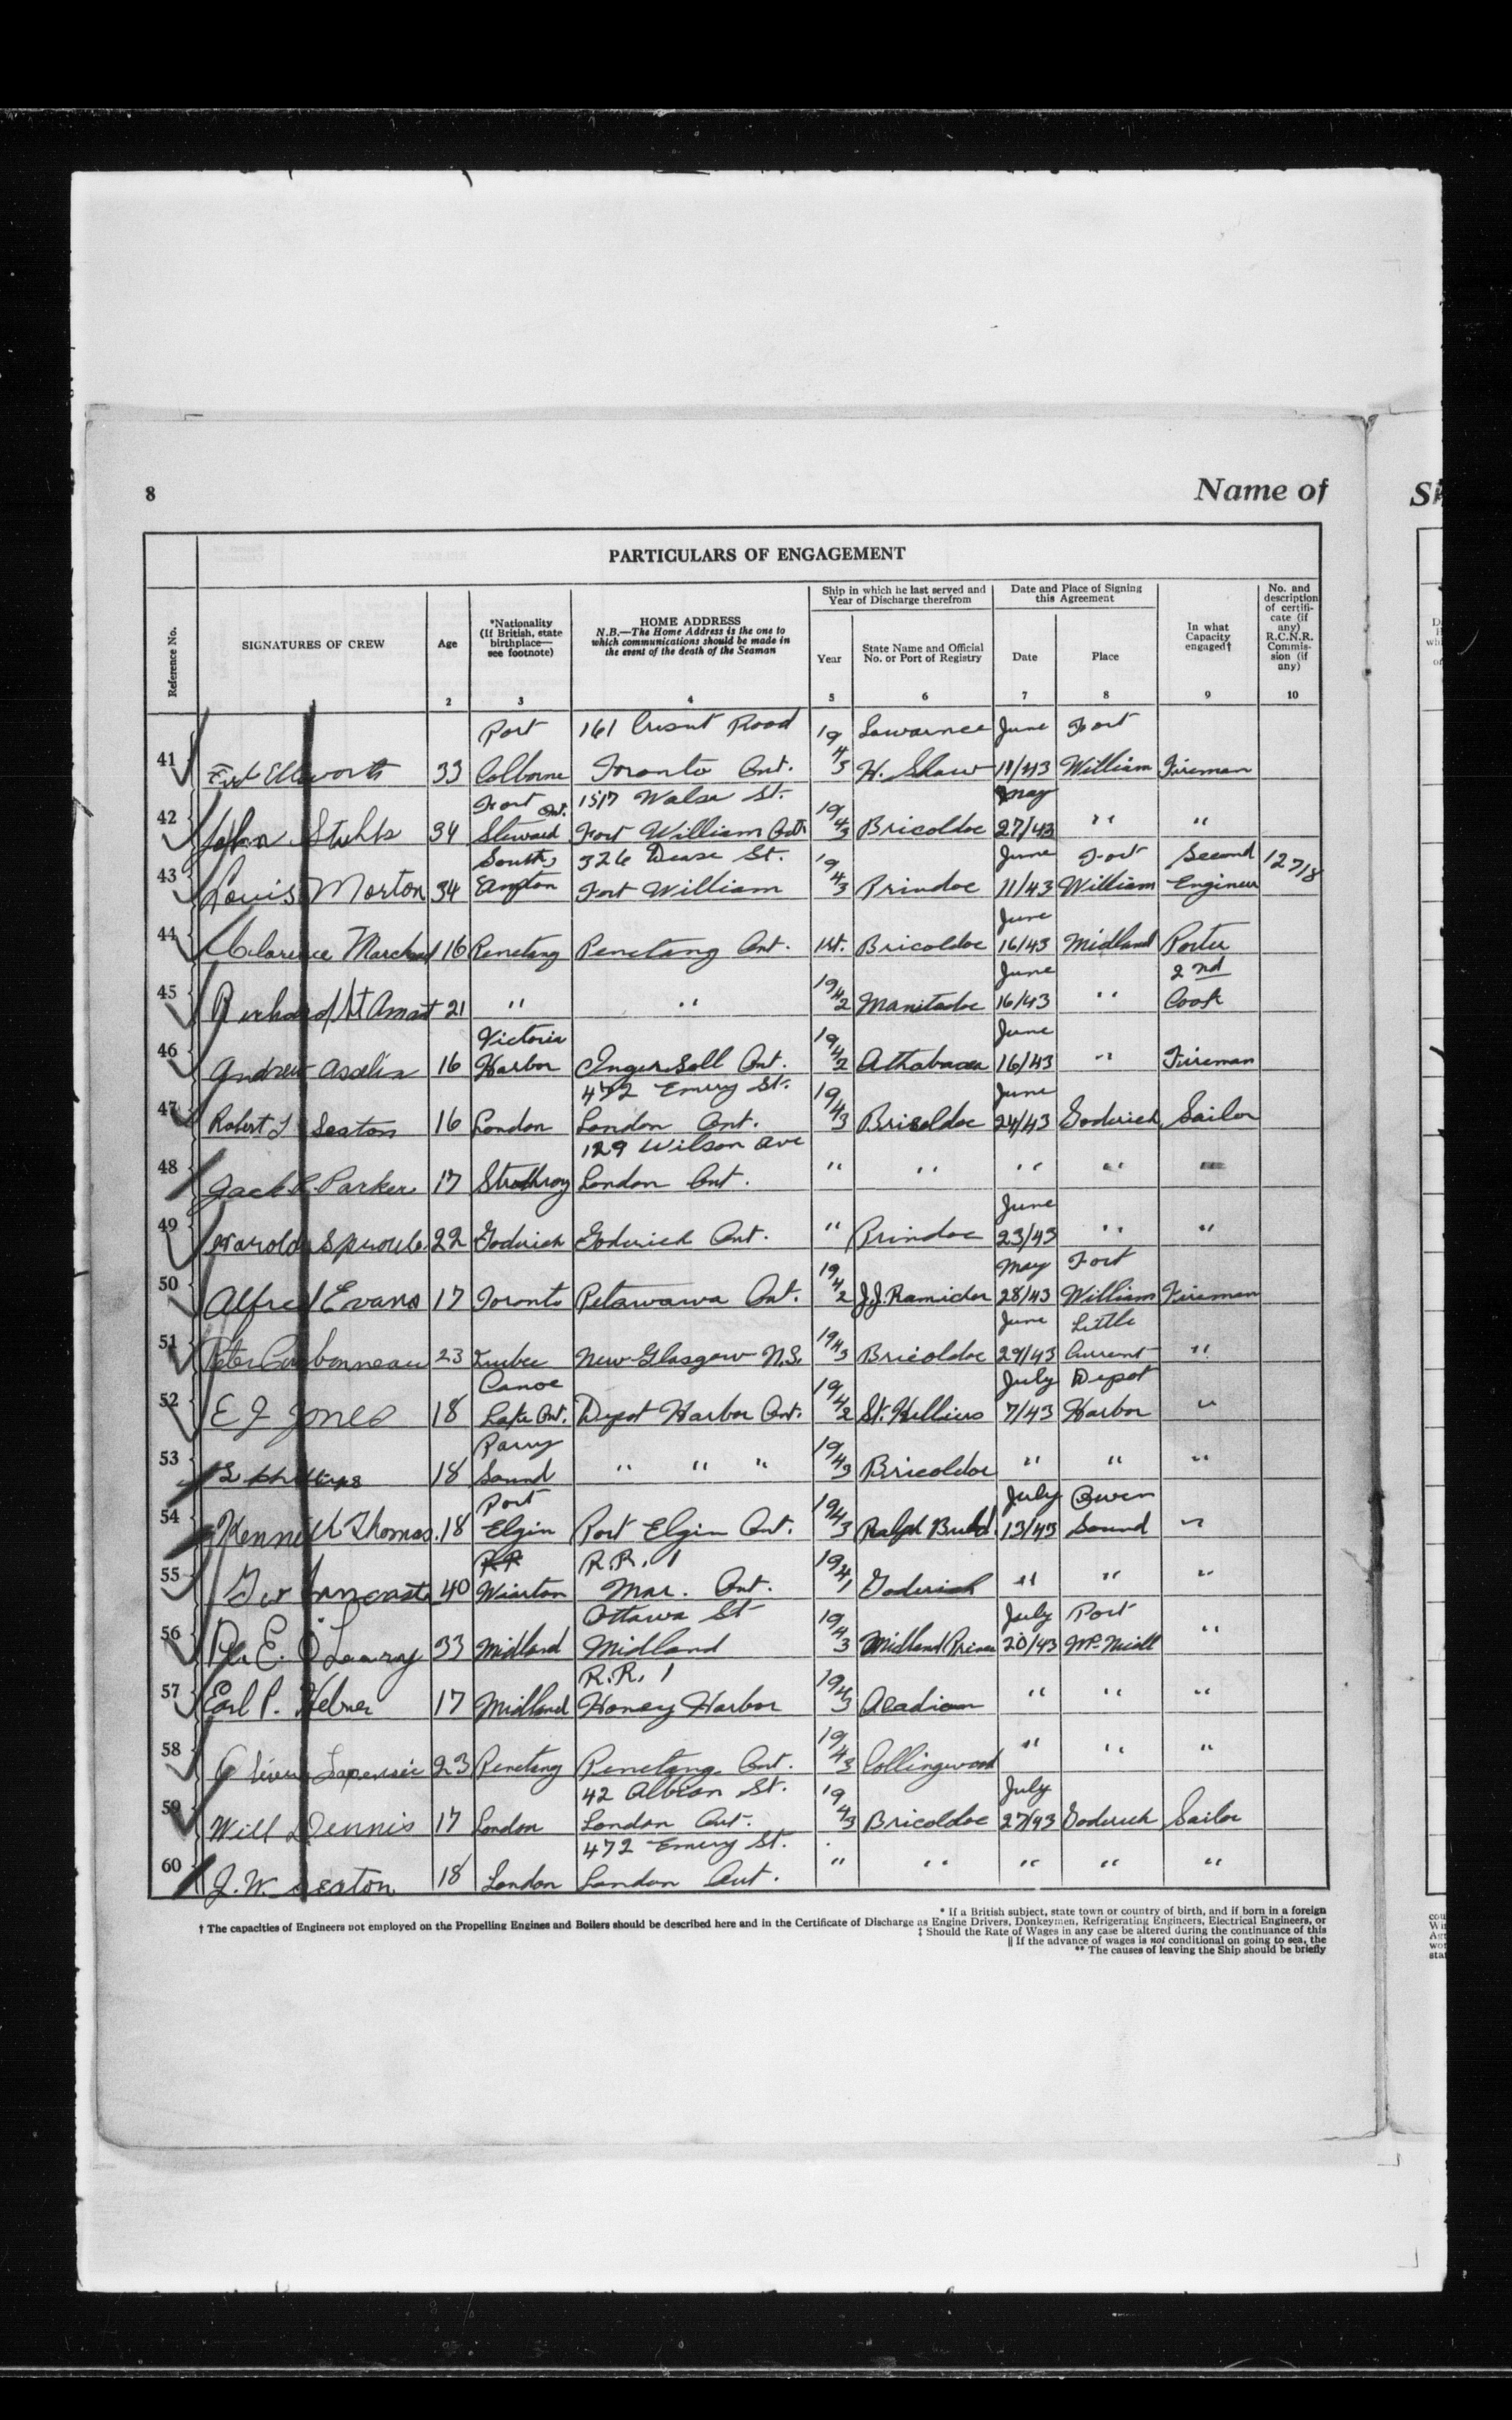 8
Name of
PARTICULARS OF ENGAGEMENT
Reference No.
SIGNATURES OF CREW
Age
2
*Nationality
(If British, state
birthplace—
see footnote)
3
HOME ADDRESS
N.B.—The Home Address is the one to
which communications should be made in
the event of the death of the Seaman
4
Ship in which he last served and
Year of Discharge therefrom
Year
5
State Name and Official
No. or Port of Registry
6
Date and Place of Signing
this Agreement
Date
7
Place
8
In what
Capacity
engaged†
9
No. and
description
of certifi-
cate (if
any)
R.C.N.R.
Commis-
sion (if
any)
10
Port 161 Road 19 June Fort
41 Ellsworth 33 Colborne Toronto Ont. 43 H. Shaw 11/43 William Fireman
Fort Ont. 1517 Walsh St. 19 May
42 John Stubbs 34 Steward Fort William Ont. 43 Bricoldoc 27/43 " "
South 326 Dease St. 19 June Fort Second 12718
43 Louis Morton 34 Ampton Fort William 43 Prindoc 11/43 William Engineer
June
44 Clarence Marchand 16 Penetang Penetang Ont. 1st. Bricoldoc 16/43 Midland Porter
19 June 2nd
45 St Amant 21 " " 42 Manitadoc 16/43 " Cook
Victoria 19 June
46 Andrew Asselin 16 Harbor Ingersoll Ont. 42 Athabasca 16/43 " Fireman
472 Emery St. 19 June
47 Robert J Seaton 16 London London Ont. 43 Bricoldoc 24/43 Goderich Sailor
129 Wilson Ave
48 Jack Parker 17 Strathroy London Ont. " " " " "
June
49 Harold Sproule 22 Goderich Goderich Ont. " Prindoc 23/43 " "
19 May Fort
50 Alfred Evans 17 Toronto Petawawa Ont. 42 J.J. 28/43 William Fireman
19 June Little
51 Peter Carbonneau 23 Quebec New Glasgow N.S. 43 Bricoldoc 29/43 Current "
Canoe 19 July Depot
52 E J Jones 18 Lake Ont. Depot Harbor Ont. 42 St. 7/43 Harbor "
Parry 19
53 Phillips 18 Sound " " " 43 Bricoldoc " " "
Port 19 July Owen
54 Kenneth Thomas. 18 Elgin Port Elgin Ont. 43 Ralph Budd. 13/43 Sound "
R.R. R.R. 1 19
55 Lancaster 40 Wiarton Mar. Ont. 41 Goderich " " "
Ottawa St 19 July Port
56 E. O'Leary 33 Midland Midland 43 Midland Prince 20/43 "
R.R. 1 19
57 Earl P. Hebner 17 Midland Honey Harbor 43 Acadian " " "
19
58 23 Penetang Penetang Ont. 43 Collingwood " " "
42 Albion St. 19 July
59 Will Dennis 17 London London Ont. 43 Bricoldoc 27/43 Goderich Sailor
472 Emery St.
60 J. W. Seaton 18 London London Ont. " " " " "
* If a British subject, state town or country of birth, and if born in a foreign
† The capacities of Engineers not employed on the Propelling Engines and Boilers should be described here and in the Certificate of Discharge as Engine Drivers, Donkeymen, Refrigerating Engineers, Electrical Engineers, or
‡ Should the Rate of Wages in any case be altered during the continuance of this
|| If the advance of wages is not conditional on going to sea, the
** The causes of leaving the Ship should be briefly